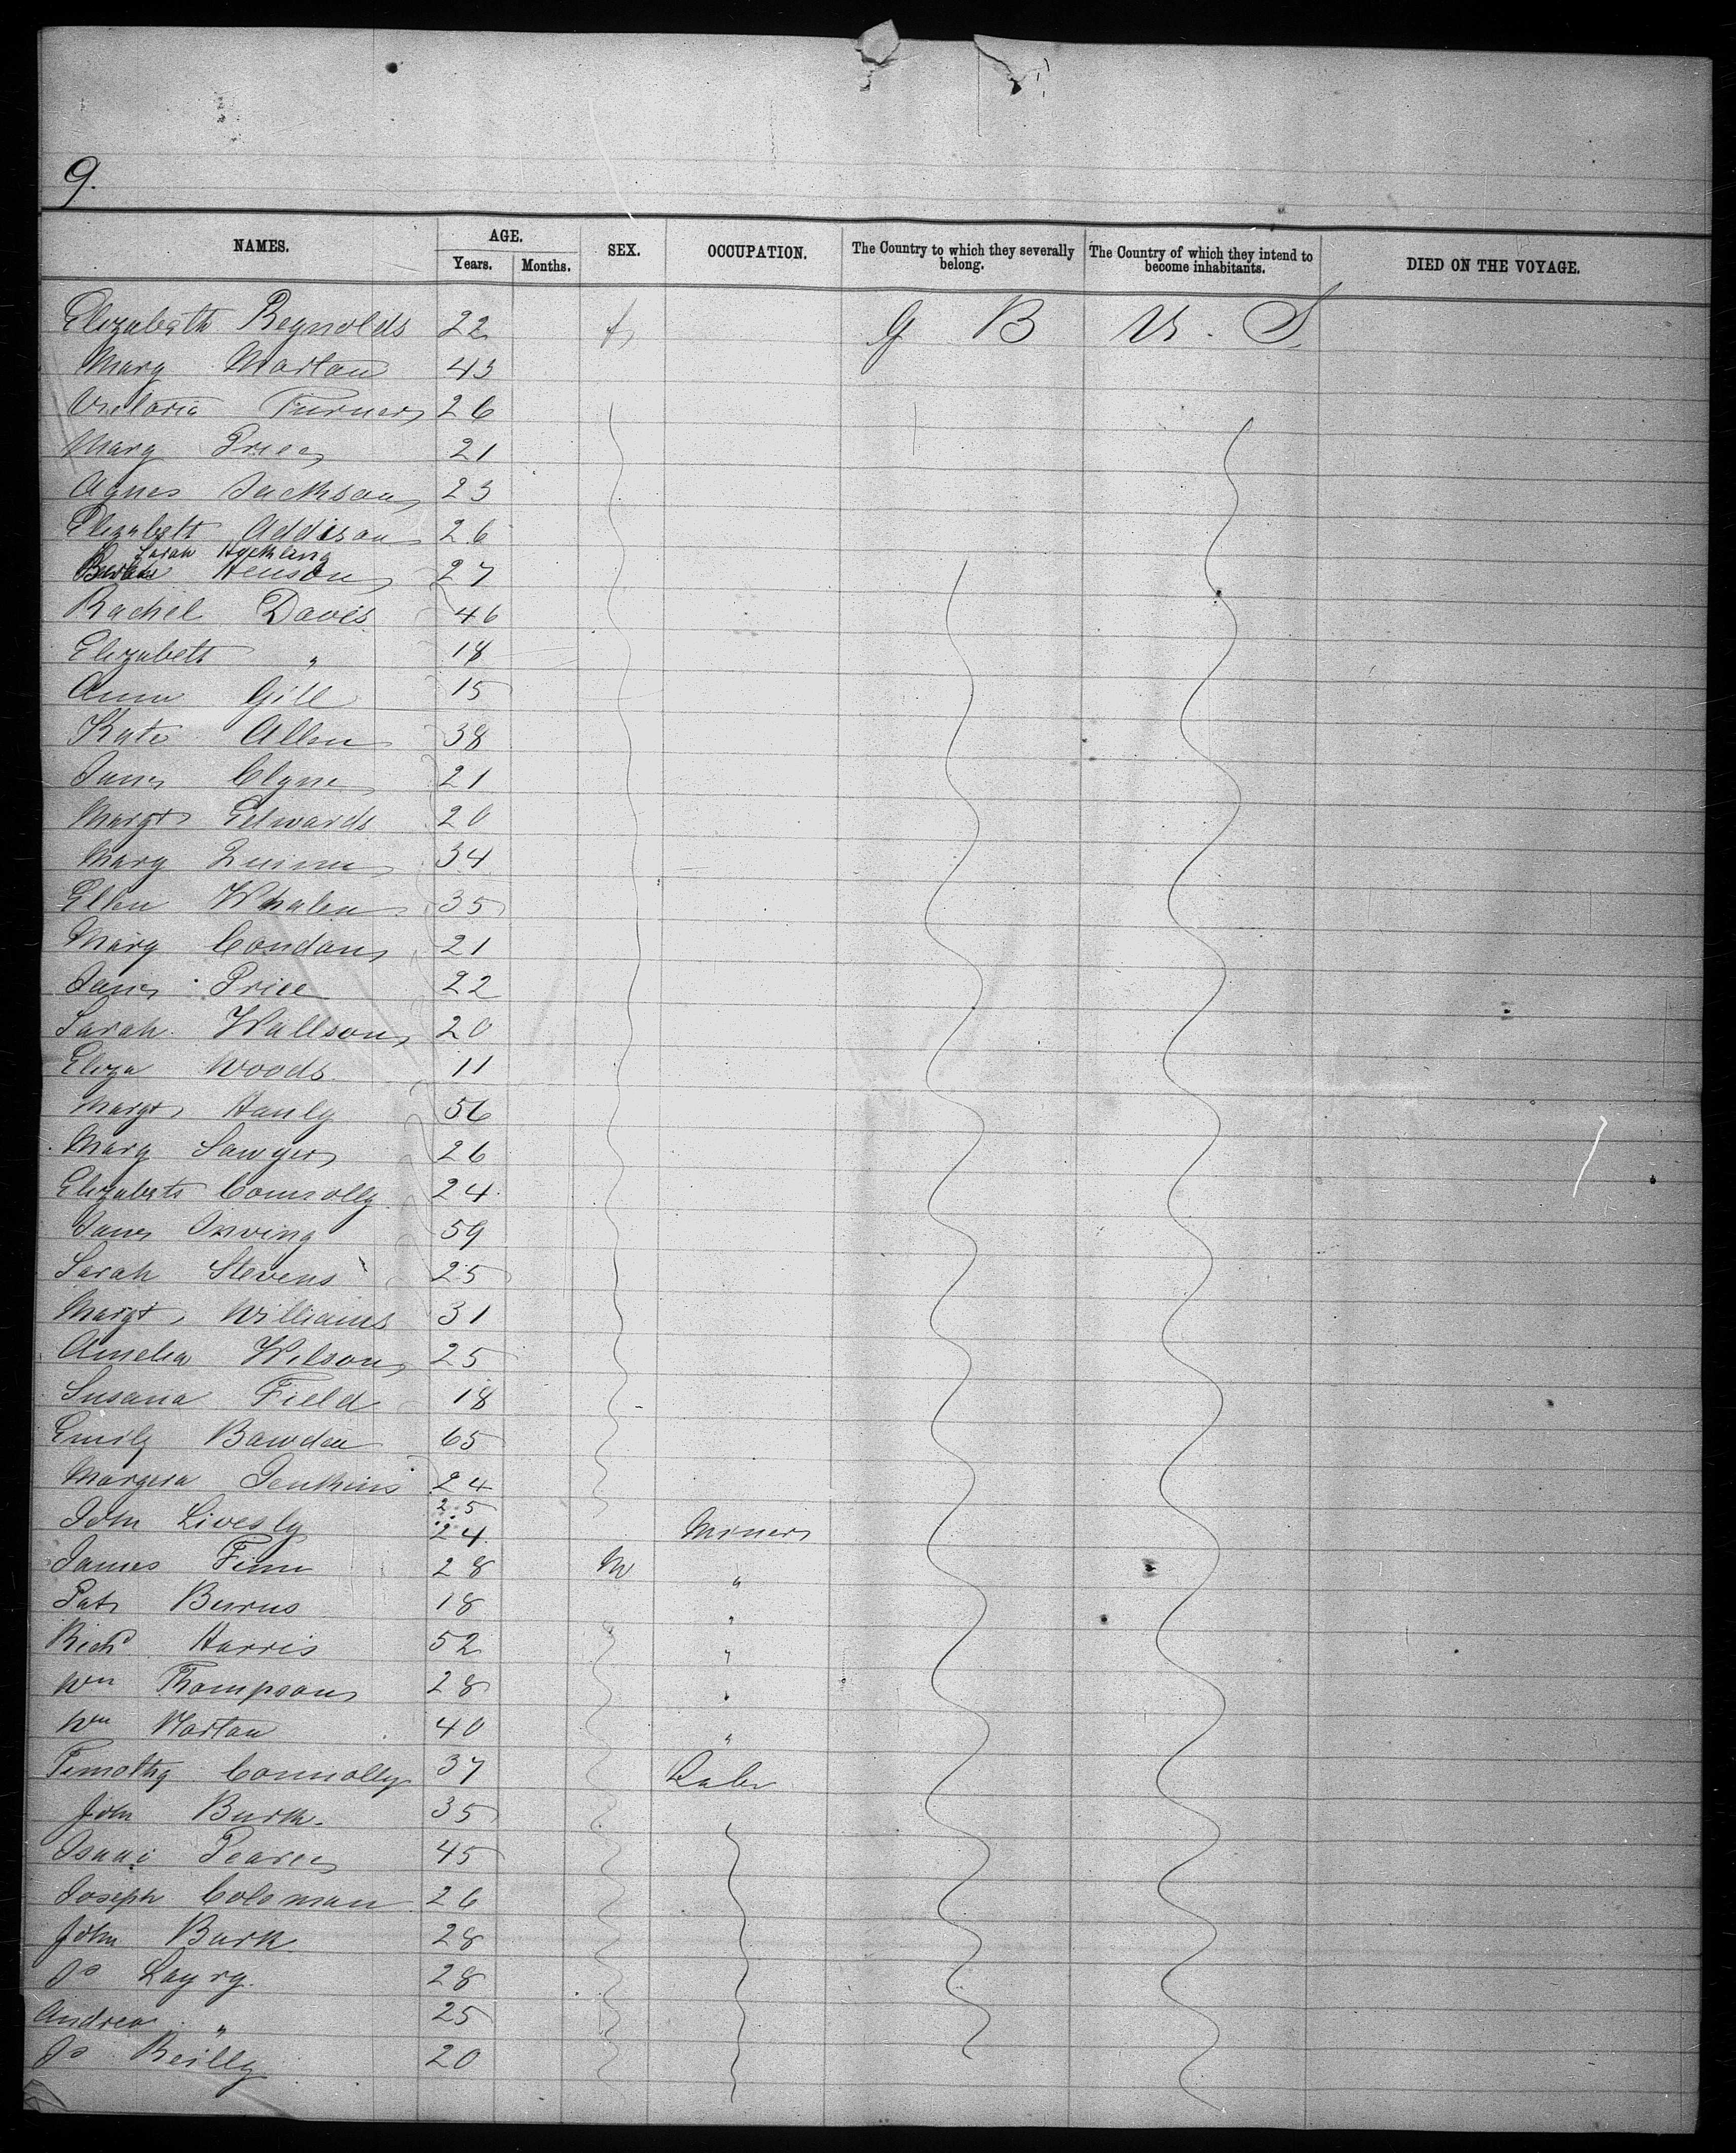 9.
NAMES. AGE. SEX. OCCUPATION. The Country to which they severally belong. The Country of which they intend to become inhabitants. DIED ON THE VOYAGE.
Years. Months.
Elizabeth Reynolds 22 f G B U. S.
Mary Martan 43
Victoria Turner 26
Mary Price 21
Agnes Jackson 23
Elizabeth Addison 26
Sarah
Henson 27
Rachel Davis 46
Elizabeth " 18
Ann Gill 15
Kate Allen 38
Jane Clyne 21
Margt Edwards 20
Mary 34
Ellen Whalen 35
Mary Condon 21
Jane Price 22
Sarah Wallson 20
Eliza Woods 11
Margt Hanly 56
Mary Sawyer 26
Elizabeth Connolly 24
Jane Irving 59
Sarah Stevens 25
Margt Williams 31
Amelia Wilson 25
Susana Field 18
Emily Bawden 65
Jenkins 24
25
John Livesly 24 Miner
James Finn 28 M "
Pat Burns 18 "
Richd Harris 52 "
Wm Thompson 28 "
Wm Martan 40 "
Timothy Connolly 37 Labr
John Burk 35
Isaac Pearce 45
Joseph Coleman 26
John Burk 28
Js 28
Andrew " 25
Js Reilly 20